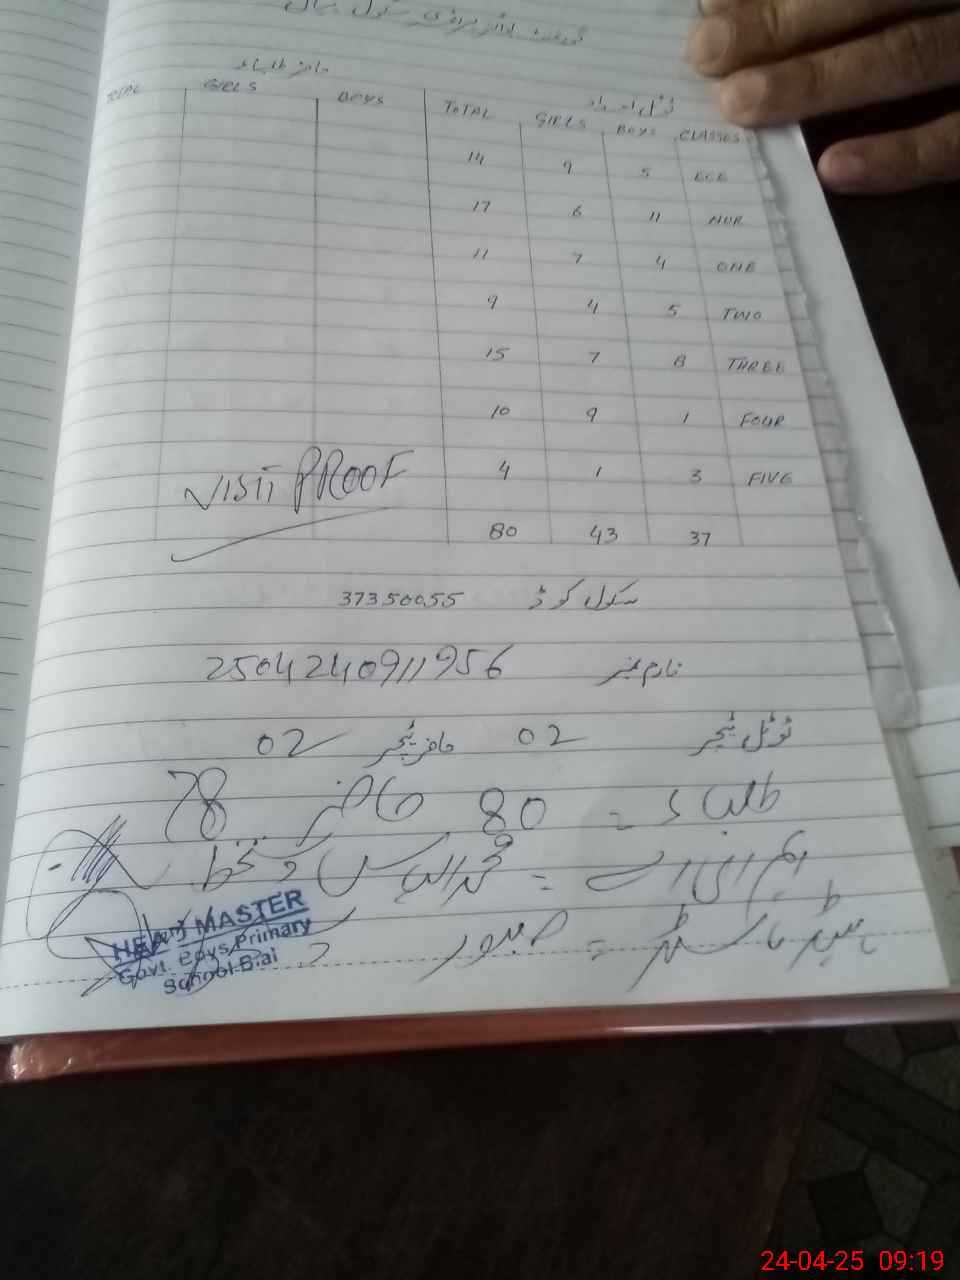 گورنمنٹ بوائز پرائمری سکول بیائی
ٹوٹل تعداد حاضر طلباء
CLASSES BOYS GIRLS TOTAL BOYS GIRLS TOTAL
ECE 5 9 14
NUR 11 6 17
ONE 4 7 11
TWO 5 4 9
THREE 8 7 15
FOUR 1 9 10
FIVE 3 1 4
37 43 80
VISIT PROOF
سکول کوڈ 37350055
فارم نمبر 2504240911956
ٹوٹل ٹیچر 02 حاضر ٹیچر 02
طلباء = 80 حاضر 78
ایم ای اے = دستخط
ہیڈ ماسٹر =
HEAD MASTER
Govt. Boys Primary
School Biai
24-04-25 09:19